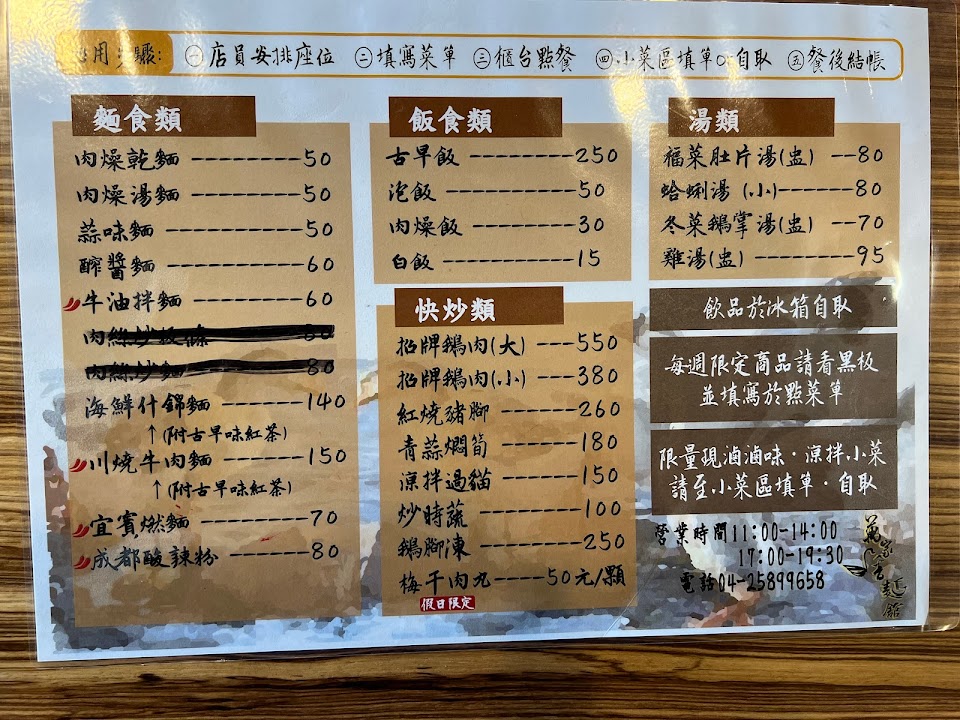 用步驟: ㊀店員安排座位 ㊁填寫菜單 ㊂櫃台點餐 ㊃小菜區填單。自取 ㊄餐後結帳
麵食類
肉燥乾麵 ---------50
肉燥湯麵 ---------50
蒜味麵 -----------50
醡醬麵 -----------60
牛油拌麵 ---------60
肉絲炒粄條
肉絲炒麵 80
海鮮什錦麵 -------140
↑(附古早味紅茶)
川燒牛肉麵 -------150
↑(附古早味紅茶)
宜賓燃麵 ---------70
成都酸辣粉 -------80
飯食類
古早飯 ---------250
泡飯 -----------50
肉燥飯 ---------30
白飯 -----------15
快炒類
招牌鵝肉(大) ---550
招牌鵝肉(小) ---380
紅燒豬腳 -------260
青蒜燜筍 -------180
涼拌過貓 -------150
炒時蔬 ---------100
鵝腳凍 ---------250
梅干肉丸-----50元/顆
假日限定
湯類
福菜肚片湯(盅) --80
蛤蜊湯 (小)------80
冬菜鵝掌湯(盅) --70
雞湯(盅) --------95
飲品於冰箱自取
每週限定商品請看黑板
並填寫於點菜單
限量現滷滷味·涼拌小菜
請至小菜區填單·自取
營業時間11:00-14:00
17:00-19:30
電話04-25899658